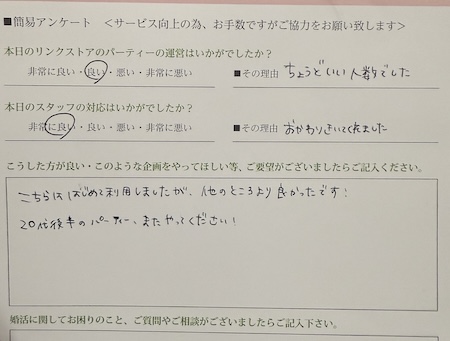 ■簡易アンケート　＜サービス向上の為、お手数ですがご協力をお願い致します＞
本日のリンクストアのパーティーの運営はいかがでしたか？
非常に良い・良い・悪い・非常に悪い　■その理由　ちょうどいい人数でした
本日のスタッフの対応はいかがでしたか？
非常に良い・良い・悪い・非常に悪い　■その理由　おかわりきいてくれました
こうした方が良い・このような企画をやってほしい等、ご要望がございましたらご記入ください。
こちらははじめて利用しましたが、他のところより良かったです！
20代後半のパーティー、またやってください！
婚活に関してお困りのこと、ご質問やご相談がございましたらご記入下さい。